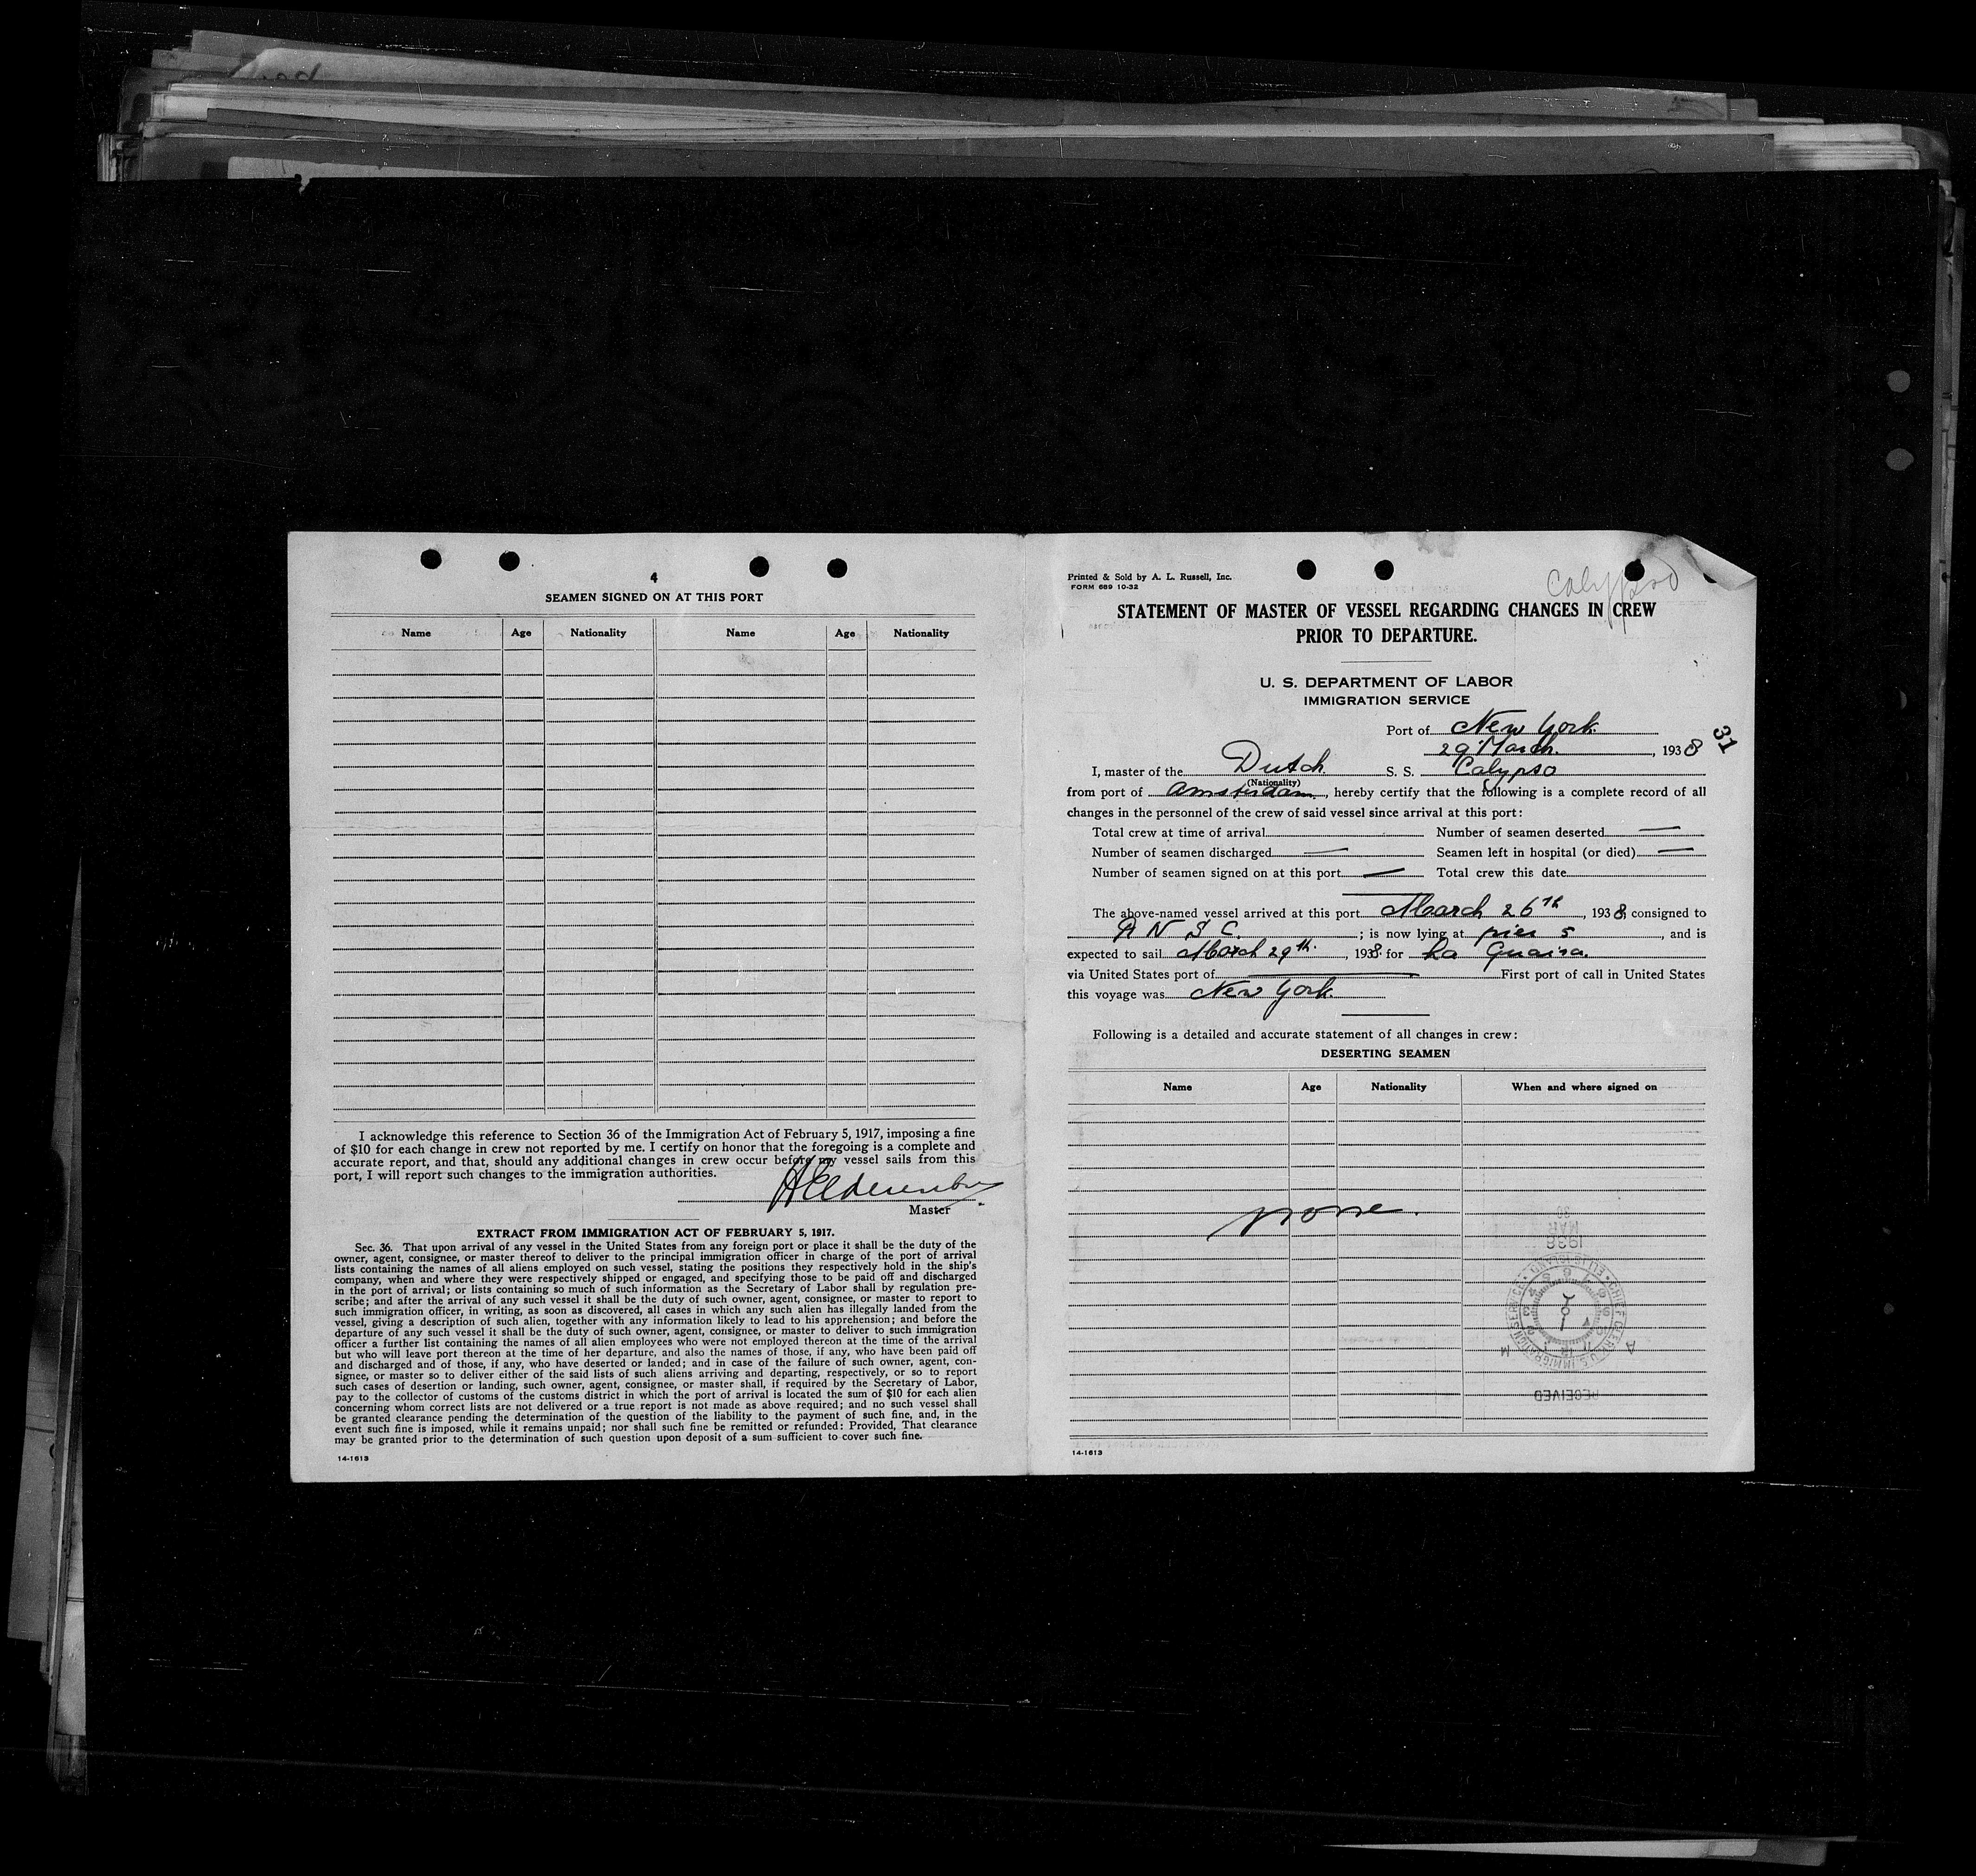 4
SEAMEN SIGNED ON AT THIS PORT
Name Age Nationality Name Age Nationality
I acknowledge this reference to Section 36 of the Immigration Act of February 5, 1917, imposing a fine
of $10 for each change in crew not reported by me. I certify on honor that the foregoing is a complete and
accurate report, and that, should any additional changes in crew occur before my vessel sails from this
port, I will report such changes to the immigration authorities.
Master
EXTRACT FROM IMMIGRATION ACT OF FEBRUARY 5, 1917.
Sec. 36. That upon arrival of any vessel in the United States from any foreign port or place it shall be the duty of the
owner, agent, consignee, or master thereof to deliver to the principal immigration officer in charge of the port of arrival
lists containing the names of all aliens employed on such vessel, stating the positions they respectively hold in the ship's
company, when and where they were respectively shipped or engaged, and specifying those to be paid off and discharged
in the port of arrival; or lists containing so much of such information as the Secretary of Labor shall by regulation pre-
scribe; and after the arrival of any such vessel it shall be the duty of such owner, agent, consignee, or master to report to
such immigration officer, in writing, as soon as discovered, all cases in which any such alien has illegally landed from the
vessel, giving a description of such alien, together with any information likely to lead to his apprehension; and before the
departure of any such vessel it shall be the duty of such owner, agent, consignee, or master to deliver to such immigration
officer a further list containing the names of all alien employees who were not employed thereon at the time of the arrival
but who will leave port thereon at the time of her departure, and also the names of those, if any, who have been paid off
and discharged and of those, if any, who have deserted or landed; and in case of the failure of such owner, agent, con-
signee, or master so to deliver either of the said lists of such aliens arriving and departing, respectively, or so to report
such cases of desertion or landing, such owner, agent, consignee, or master shall, if required by the Secretary of Labor,
pay to the collector of customs of the customs district in which the port of arrival is located the sum of $10 for each alien
concerning whom correct lists are not delivered or a true report is not made as above required; and no such vessel shall
be granted clearance pending the determination of the question of the liability to the payment of such fine, and, in the
event such fine is imposed, while it remains unpaid; nor shall such fine be remitted or refunded: Provided, That clearance
may be granted prior to the determination of such question upon deposit of a sum sufficient to cover such fine.
14-1613
Printed & Sold by A. L. Russell, Inc.
FORM 689 10-32
Calypso
STATEMENT OF MASTER OF VESSEL REGARDING CHANGES IN CREW
PRIOR TO DEPARTURE.
U. S. DEPARTMENT OF LABOR
IMMIGRATION SERVICE
Port of New York
29 March, 1938
31
I, master of the Dutch S. S. Calypso
(Nationality)
from port of Amsterdam, hereby certify that the following is a complete record of all
changes in the personnel of the crew of said vessel since arrival at this port:
Total crew at time of arrival Number of seamen deserted —
Number of seamen discharged — Seamen left in hospital (or died) —
Number of seamen signed on at this port — Total crew this date
The above-named vessel arrived at this port March 26th, 1938, consigned to
R N S C.; is now lying at pier 5, and is
expected to sail March 29th., 1938 for La Guaira.
via United States port of — First port of call in United States
this voyage was New York.
Following is a detailed and accurate statement of all changes in crew:
DESERTING SEAMEN
Name Age Nationality When and where signed on
none.
30
MAR
1938
CHIEF CLERK U.S. IMMIGRATION SERVICE ELLIS ISLAND
A M
RECEIVED
14-1613